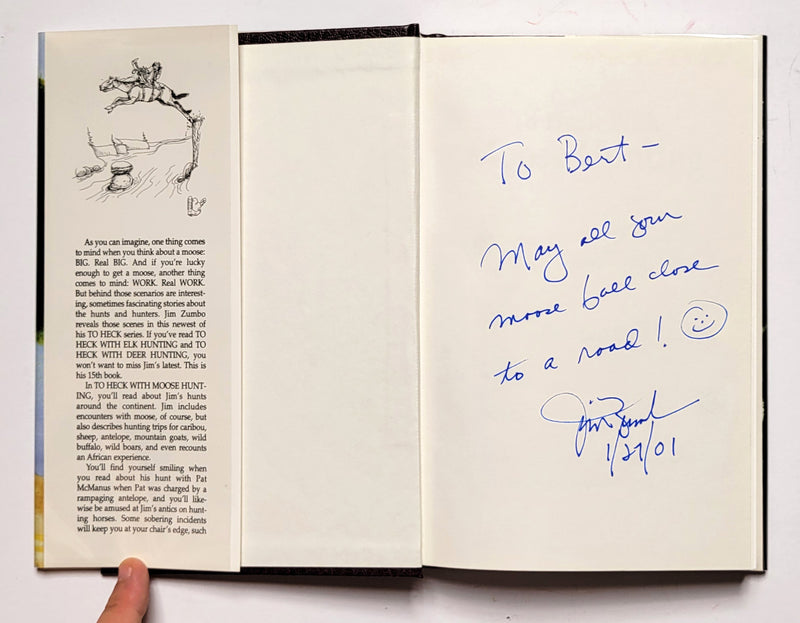 As you can imagine, one thing comes
to mind when you think about a moose:
BIG. Real BIG. And if you're lucky
enough to get a moose, another thing
comes to mind: WORK. Real WORK.
But behind those scenarios are interest-
ing, sometimes fascinating stories about
the hunts and hunters. Jim Zumbo
reveals those scenes in this newest of
his TO HECK series. If you've read TO
HECK WITH ELK HUNTING and TO
HECK WITH DEER HUNTING, you
won't want to miss Jim's latest. This is
his 15th book.
In TO HECK WITH MOOSE HUNT-
ING, you'll read about Jim's hunts
around the continent. Jim includes
encounters with moose, of course, but
also describes hunting trips for caribou,
sheep, antelope, mountain goats, wild
buffalo, wild boars, and even recounts
an African experience.
You'll find yourself smiling when
you read about his hunt with Pat
McManus when Pat was charged by a
rampaging antelope, and you'll like-
wise be amused at Jim's antics on hunt-
ing horses. Some sobering incidents
will keep you at your chair's edge, such
To Bert -
May all your
moose fall close
to a road!
Jim Zumbo
1/27/01